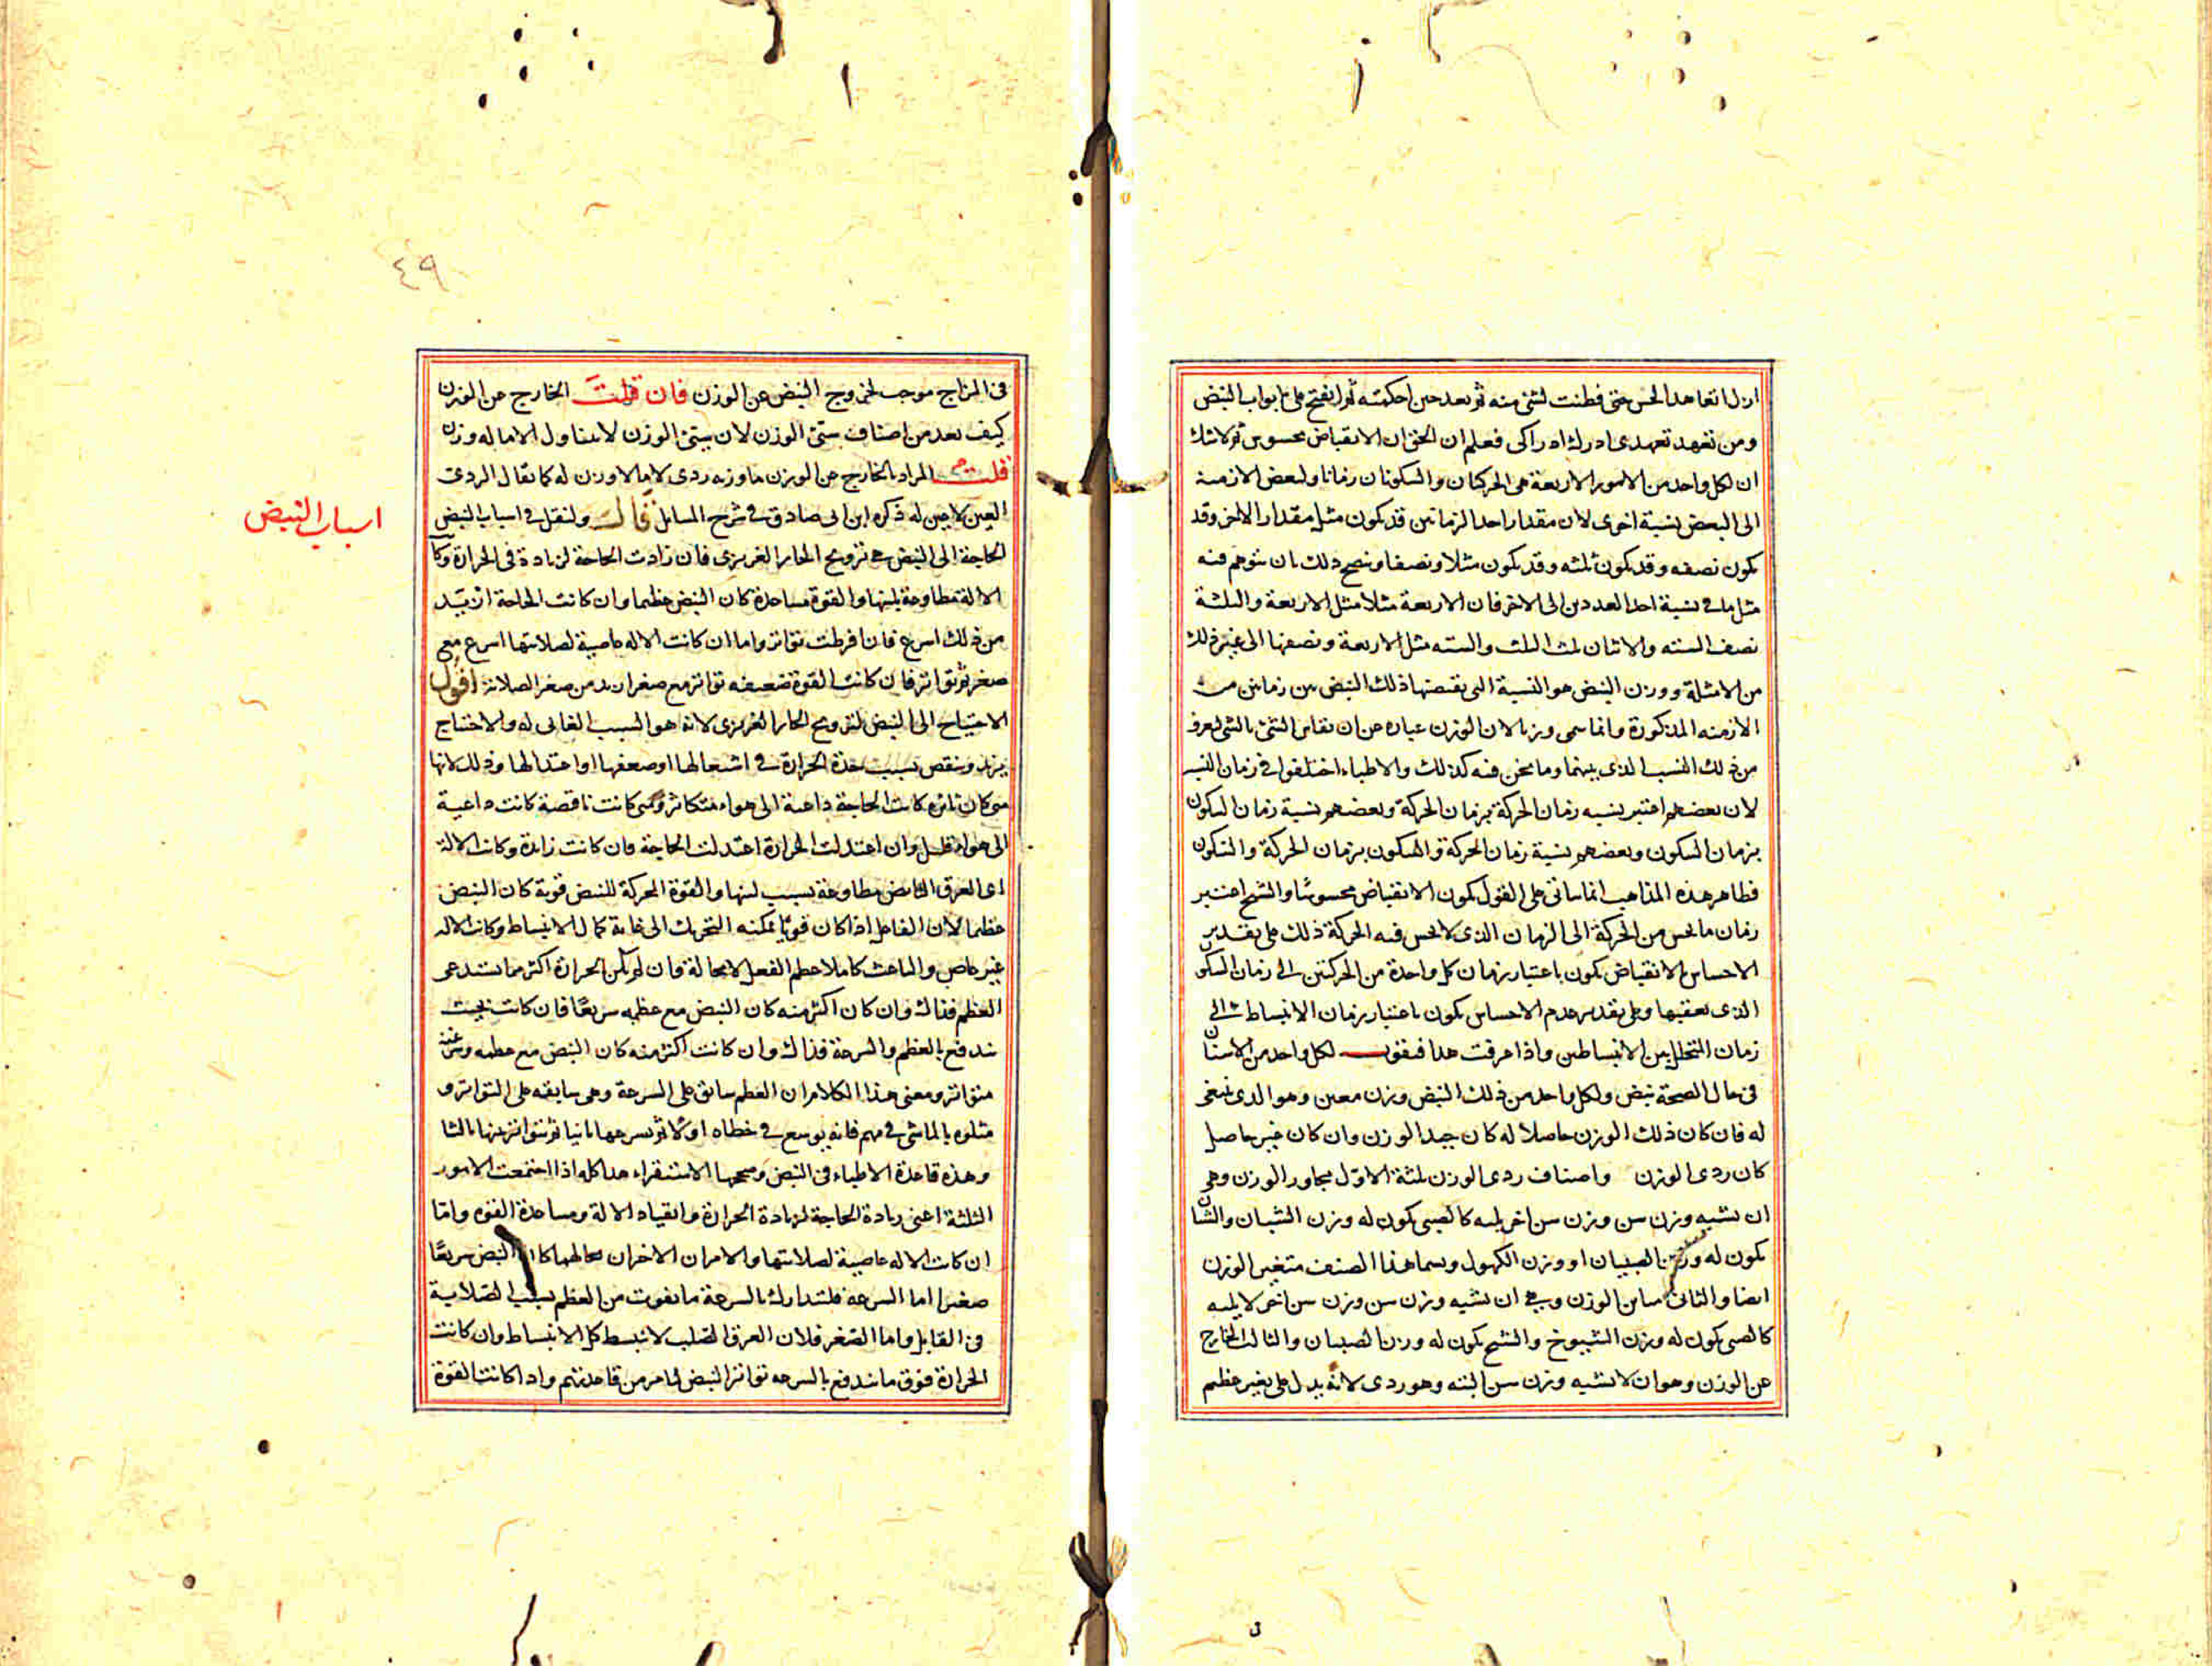 ازل اتعاهد الحس حتى فطنت لشئ منه ثم بعد حين احكمته ثم انفتح على ابواب النبض
ومن تعهد تعهدى ادرك ادراكى فعلم ان الحق ان الانقباض محسوس ثم لا شك
ان لكل واحد من الامور الاربعة هى الحركتان والسكونان زمانا ولبعض الازمنة
الى البعض نسبة اخرى لان مقدار احد الزمانين قد يكون مثل مقدار الاخر وقد
يكون نصفه وقد يكون ثلثه وقد يكون مثلا ونصفا ويتضح ذلك بان نتوهم فيه
مثل ما فى نسبة احد العددين الى الاخر فان الاربعة مثلا مثل الاربعة والثلثة
نصف الستة والاثنان ثلث الستة والستة مثل الاربعة ونصفها الى غير ذلك
من الامثلة ووزن النبض هو النسبة التى يقتضيها ذلك النبض بين زمانين من
الازمنه المذكورة وانما سمى وزنا لان الوزن عبارة عن ان يقاس الشئ بالشئ ليعرف
من ذلك النسب الذى بينهما وما نحن فيه كذلك والاطباء اختلفوا فى زمان النسبة
لان بعضهم اعتبر نسبه زمان الحركة بزمان الحركة وبعضهم نسبة زمان السكون
بزمان السكون وبعضهم نسبة زمان الحركة والسكون بزمان الحركة والسكون
فظاهر هذه المذاهب انما يتأتى على القول بكون الانقباض محسوسا والشيخ اعتبر
زمان ما يحس من الحركة الى الزمان الذى لا يحس فيه الحركة ذلك على تقدير
الاحساس بالانقباض يكون باعتبار زمان كل واحدة من الحركتين الى زمان السكون
الذى يعقبها وعلى تقدير عدم الاحساس يكون باعتبار زمان الانبساط الى
زمان المتخلل بين الانبساطين واذا عرفت هذا فنقول لكل واحد من الاسنان
فى حال الصحة نبض ولكل واحد من ذلك النبض وزن معين وهو الذى ينبغى
له فان كان ذلك الوزن حاصلا له كان جيد الوزن وان كان غير حاصل
كان ردى الوزن واصناف ردى الوزن ثلثة الاول مجاوز الوزن وهى
ان يشبه وزن سن وزن سن اخر يليه كالصبى يكون له وزن الشبان والشاب
يكون له وزن الصبيان او وزن الكهول ويسما هذا الصنف متغير الوزن
ايضا والثانى مباين الوزن وهى ان يشبه وزن سن وزن سن اخر لا يليه
كالصبى يكون له وزن الشيوخ والشيخ يكون له وزن الصبيان والثالث الخارج
عن الوزن وهو ان لا يشبه وزن سن البتة وهو ردى لانه يدل على تغير عظيم
٤٩
فى المزاج موجب لخروج النبض عن الوزن فان قلت الخارج عن الوزن
كيف يعد من اصناف سئ الوزن لان سئ الوزن لا يتناول الا ما له وزن
قلت المراد بالخارج عن الوزن ما وزنه ردى لا ما لا وزن له كما يقال الردى
العين لا عين له ذكره ابن ابى صادق فى شرح المسائل قال ولنقل فى اسباب النبض
اسباب النبض
الحاجة الى النبض هى ترويح الحار الغريزى فان زادت الحاجة لزيادة فى الحرارة وكانت
الالة مطاوعة بلينها والقوة مساعدة كان النبض عظيما وان كانت الحاجة ازيد
من ذلك اسرع فان افرطت تواتر واما ان كانت الاله عاصية لصلابتها اسرع مع
صغر ثم تواتر فان كانت القوة ضعيفه تواتر مع صغر ازيد من صغر الصلابة اقول
الاحتياج الى النبض لترويح الحار الغريزى لانه هو السبب الغائى له والاحتياج
يزيد وينقص بسبب حدة الحرارة فى اشتعالها او ضعفها او اعتدالها وذلك لانها
متى كان زائده كانت الحاجة داعية الى هواء متكاثر ومتى كانت ناقصة كانت داعية
الى هواء قليل وان اعتدلت الحرارة اعتدلت الحاجة فان كانت زائدة وكانت الالة
اى العرق النابض مطاوعة بسبب لينها والقوة المحركة للنبض قوية كان النبض
عظيما لان الفاعل اذا كان قويا يمكنه التحريك الى غاية كمال الانبساط وكانت الاله
غير عاص والباعث كاملا عظم الفعل لا محالة فان لم يكن الحرارة اكثر مما يستدعى
العظم فذاك وان كان اكثر منه كان النبض مع عظمه سريعا فان كانت بحيث
يندفع بالعظم والسرعة فذاك وان كانت اكثر منه كان النبض مع عظمه وسرعته
متواتر ومعنى هذا الكلام ان العظم سابق على السرعة وهى سابقه على التواتر و
مثلوه بالماشى فى مهم فانه يوسع فى خطاه اولا ثم يسرعها ثانيا ثم يتواتر بها ثالثا
وهذه قاعدة الاطباء فى النبض وصححها الاستقراء هذا كله اذا اجتمعت الامور
الثلثة اعنى زيادة الحاجة لزيادة الحرارة وانقياد الالة ومساعدة القوة واما
ان كانت الاله عاصية لصلابتها والامران الاخران بحالهما كان النبض سريعا
صغيرا اما السرعة فلتدارك بالسرعة ما يفوت من العظم بسبب الصلابة
فى القابل واما الصغر فلان العرق الصلب لا ينبسط كل الانبساط وان كانت
الحرارة فوق ما يندفع بالسرعه تواتر النبض لما مر من قاعدتهم واذا كانت القوة